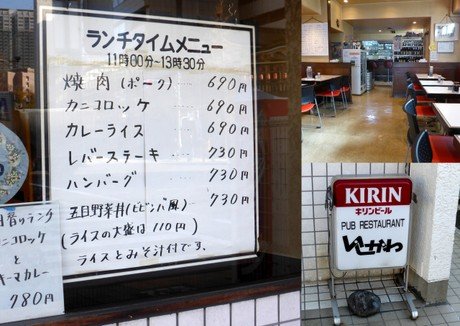 ランチタイムメニュー
11時00分-13時30分
焼肉(ポーク) ‥‥ 690円
カニコロッケ ‥‥ 690円
カレーライス ‥‥ 690円
レバーステーキ ‥‥ 730円
ハンバーグ ‥‥ 730円
五目野菜丼(ビビンバ風) 730円
(ライスの大盛は110円)
ライスとみそ汁付です。
日替りランチ
カニコロッケ
と
キーマカレー
780円
KIRIN
キリンビール
PUB RESTAURANT
いせかわ